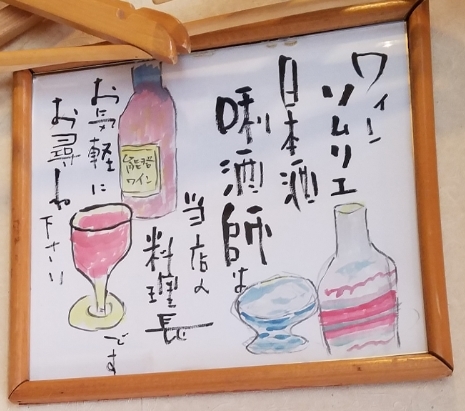 ワイン
ソムリエ
日本酒
唎酒師は
当店の
料理長
です
お気軽に
お尋ね
下さい
能登
ワイン